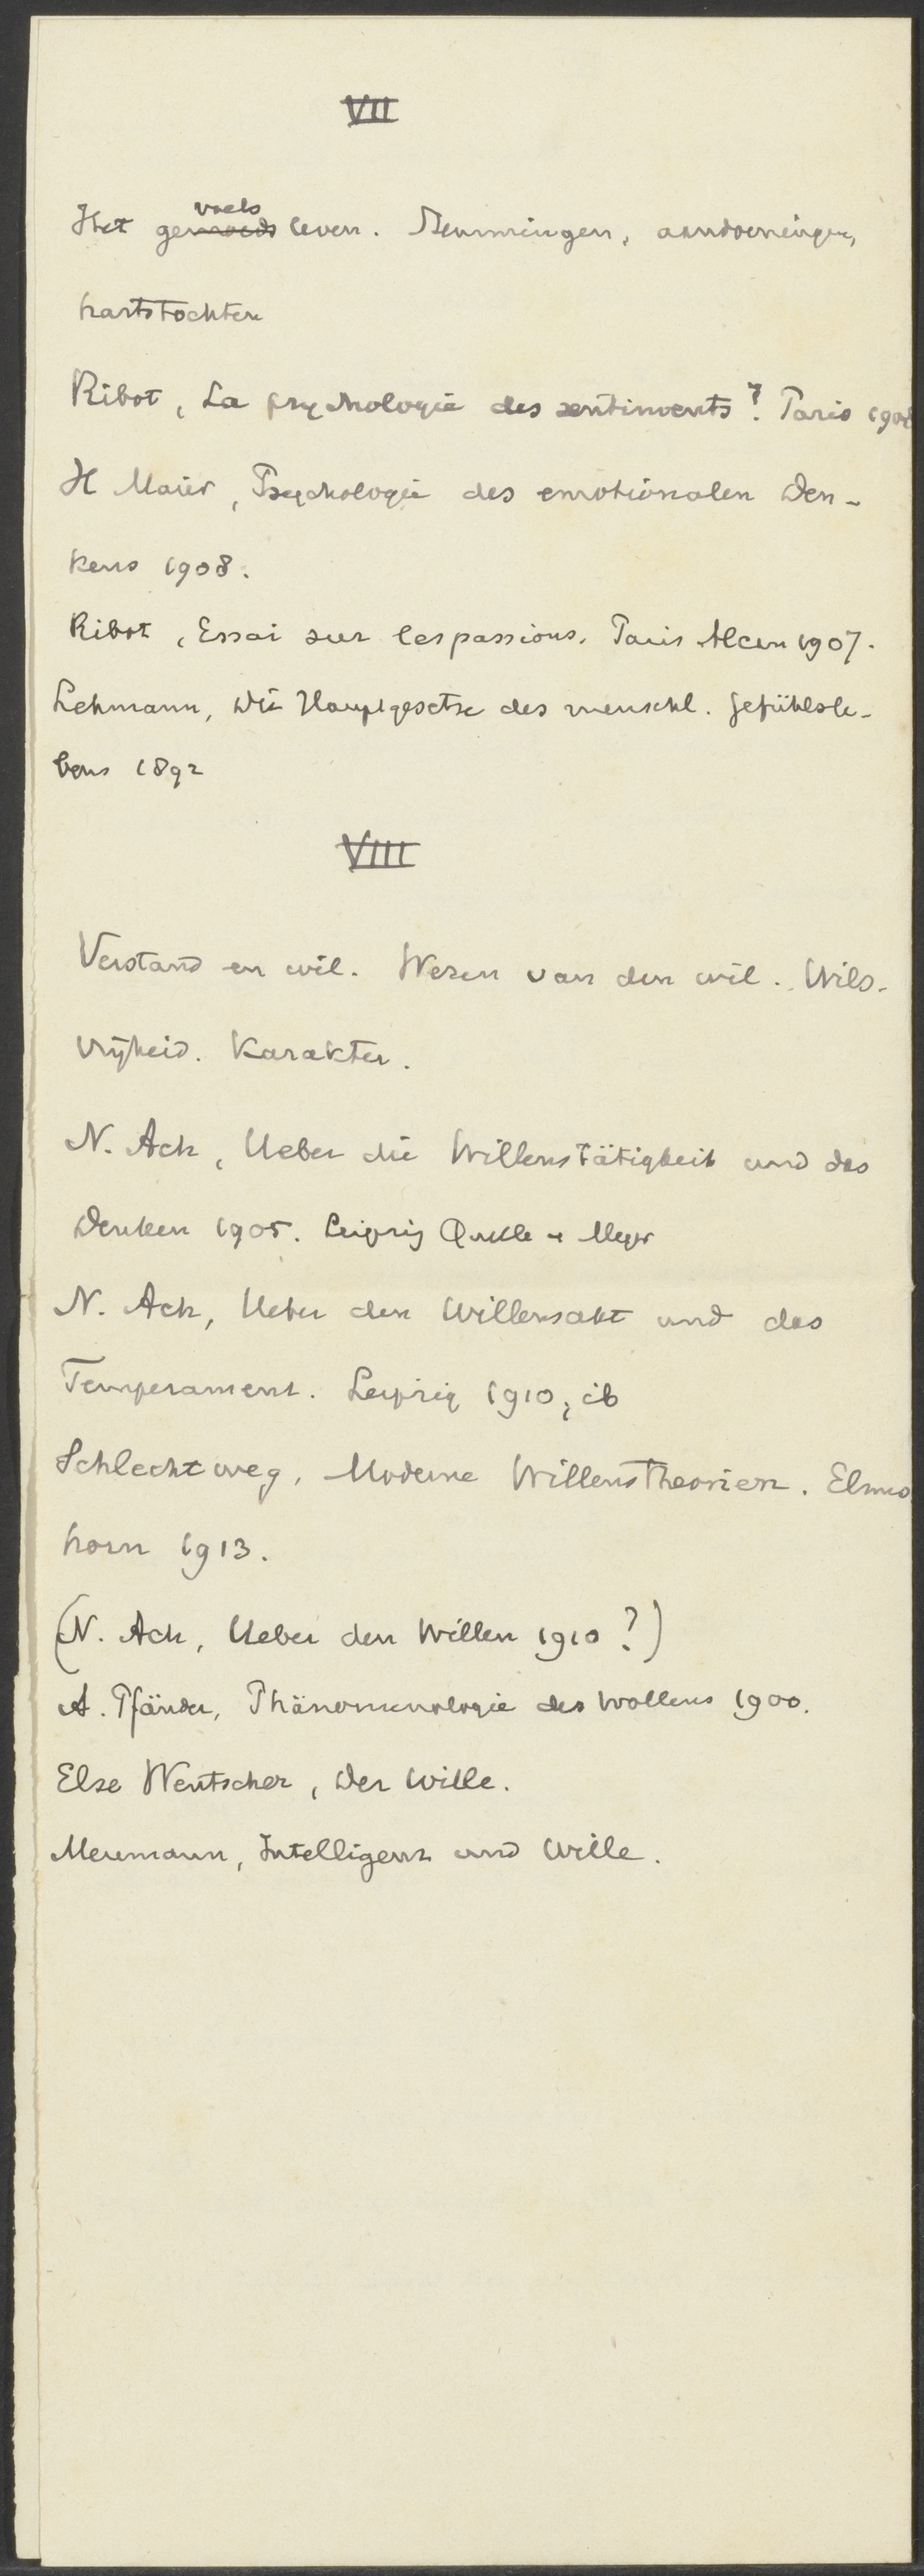 VII
Het gevoelsleven. Stemmingen, aandoeningen,
hartstochten
Ribot, La psychologie des sentiments 7. Paris 1908
H Maier, Psychologie des emotionalen Den-
kens 1908.
Ribot, Essai sur les passions. Paris Alcan 1907.
Lehmann, Die Hauptgesetze des menschl. Gefühlsle-
bens 1892
VIII
Verstand en wil. Wezen van den wil. Wils-
vrijheid. Karakter.
N. Ach, Ueber die Willenstätigkeit und das
Denken 1905. Leipzig Quelle u Meyer
N. Ach, Ueber den Willensakt und das
Temperament. Leipzig 1910, ib
Schlechtweg, Moderne Willenstheorien. Elms
horn 1913.
(N. Ach, Ueber den Willen 1910?)
A. Pfänder, Phänomenologie des Wollens 1900.
Else Wentscher, Der Wille.
Meumann, Intelligenz und Wille.